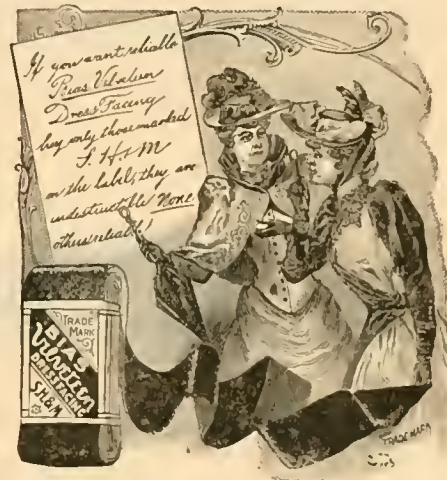 If you want reliable
Bias Velveteen
Dress Facing
buy only those marked
S. H & M
on the label; they are
indestructible None
others reliable!
TRADE
MARK
BIAS
VELVETEEN
DRESS FACING
S.H.&M.
TRADE MARK